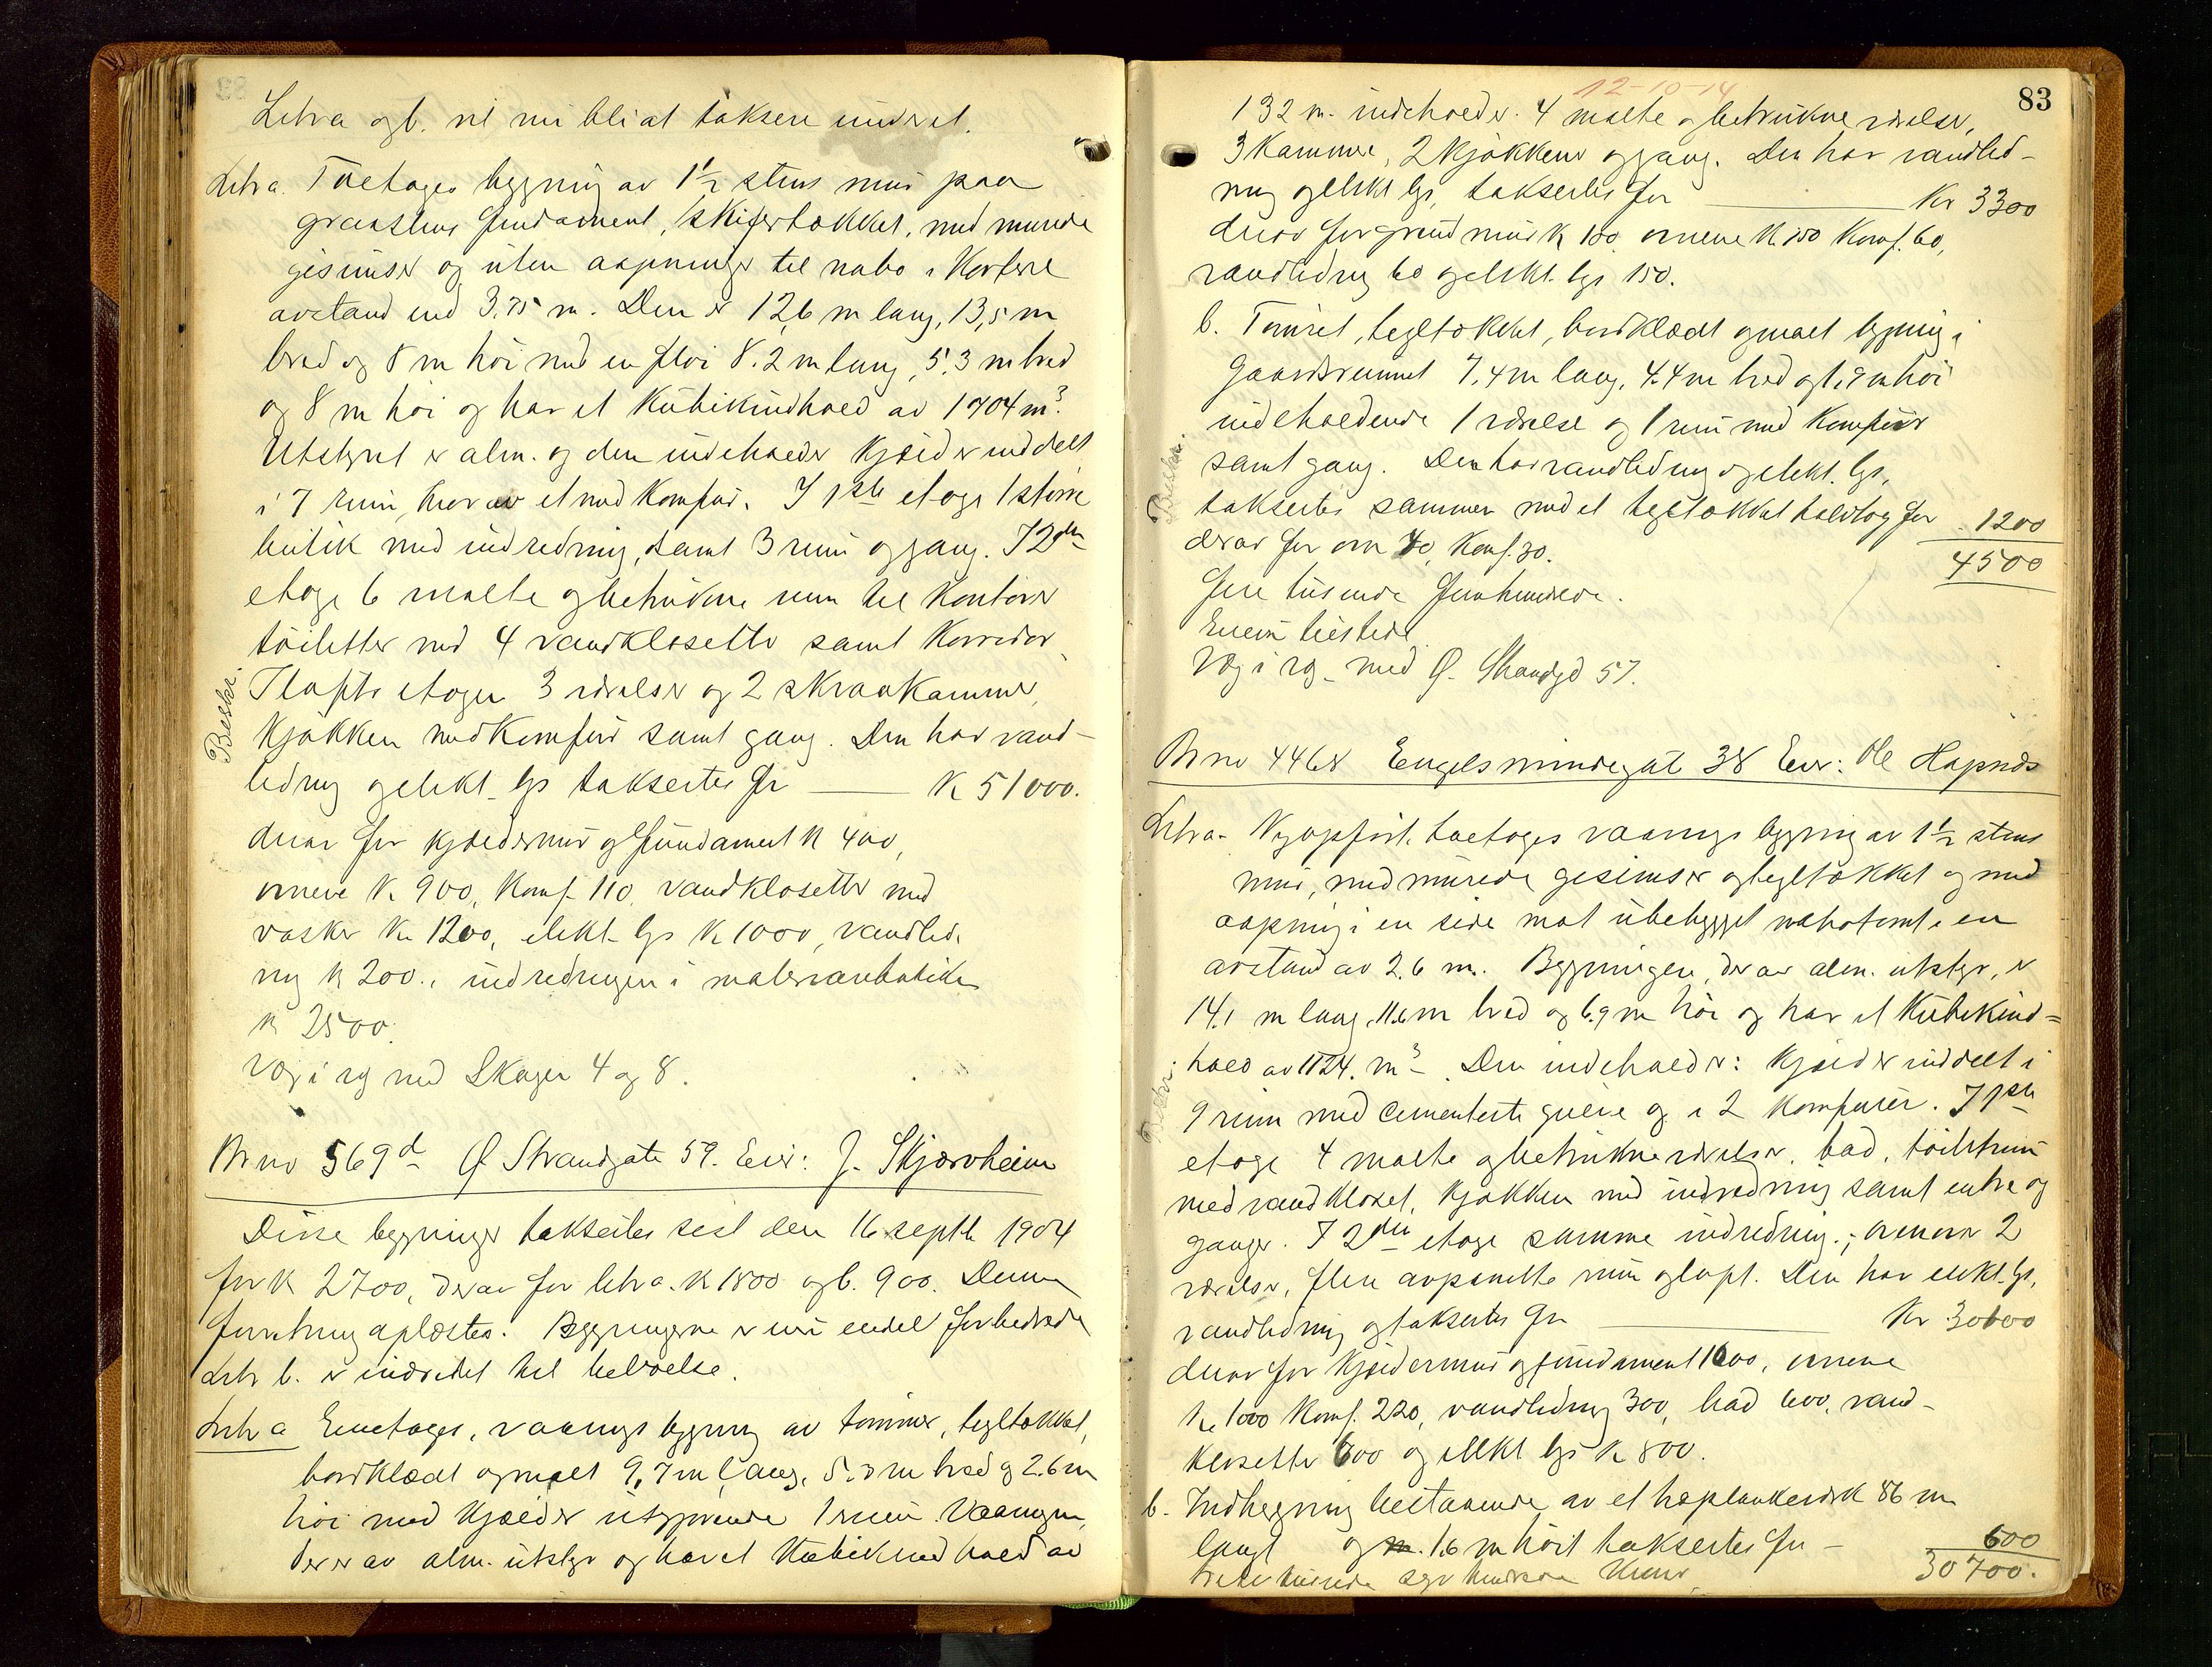 Litra og b. vil nu bli at taksere under et.
Litr a. Toetages bygning av 1½ stens mur paa
graastens fundament, skifertækket, med murede
gesimser og uten aapninger til nabo i kortere
avstand end 3.75 m. Den er 12,6 m lang, 13,5 m
bred og 8 m høi med en fløi 8.2 m lang, 5.3 m bred
og 8 m høi og har et kubikindhold av 1704 m³.
Utstyret er alm. og den indeholder kjælder inddelt
i 7 rum, hvorav et med komfur. I 1ste etage 1 større
butik med indredning, samt 3 rum og gang. I 2den
etage 6 malte og betrukne rum til kontorer
toiletter med 4 vandklosetter samt korridor.
I loftsetagen 3 værelser og 2 skraakammer,
kjøkken med komfur samt gang. Den har vand-
ledning og elekt. lys takseertes for K 51000.
derav for kjældermur og fundament K 400,
ovnene K. 900, komf. 110, vandklosetter med
vasker Kr. 1200, elekt. lys K 1000, vandled-
ning K 200., indredningen i
K 2500.
Veg i rg med Skagen 4 og 8.
Beskr.
Br no 569d Ø. Strandgate 59. Eier: J. Skjærvheim
Disse bygninger takseertes sist den 16 septb 1904
for K 2700, derav for litr a. K 1800 og b. 900. Denne
forretning aplæstes. Bygningerne er nu endel forbedrede
Litr b. er indredet til beboelse.
Litr a Enetages, vaanings bygning av tømmer, tegltækket,
bordklædt og malt 9,7 m lang, 5.3 m bred og 2.6 m
høi med kjælder utgjørende 1 rum. Vaaningen,
der er av alm. utstyr og har et kubikindhold av
12-10-14
83
132 m. indeholder. 4 malte og betrukne værelser,
3 kammer, 2 kjøkkener og gang. Den har vandled-
ning og elekt lys, takseertes for Kr 3300
derav for grundmur K 150, ovnene K 150 Komf. 60,
vandledning 60 og elekt. lys 150.
b. Tømret, tegltækket, bordklædt og malt bygning i
gaardsrummet 7.4 m lang, 4.4 m bred og høi
indeholdende 1 værelse og 1 rum med komfur
samt gang. Den har vandledning og elekt. lys,
takseertes sammen med et tegltækket halvtag for 1200
derav for ovn 40, komf. 30. 4500
Fire tusende femhundrede.
Eieren tilstede.
Veg i rg. med Ø. Strandgd 57.
Beskr.
Br no 4468 Engelsmindegate 38 Eier: Ole Hapnæs
Litr a. Nyopført. toetages vaanings bygning av 1½ stens
mur, med murede gesimser og tegltækket og med
aapning i en side mot ubebygget nabotomt i en
avstand av 2.6 m. Bygningen, der av alm. utstyr, er
14.1 m lang, 11.6 m bred og 6.9 m høi og har et kubikind=
hold av 1124. m³. Den indeholder: kjælder inddelt i
9 rum med cementerte gulve og i 2 komfurer. I 1ste
etage 4 malte og betrukne værelser, bad, toiletrum
med vandkloset, kjøkken med indredning samt entre og
ganger. I 2den etage samme indredning.; ovenover 2
værelser, flere avpanelte rum og loft. Den har elekt. lys,
vandledning og takseertes for Kr 30000
derav for kjældermur og fundament 1600, ovnene
Kr 1000 Komf. 220, vandledning 300, bad 600, vand-
klosetter 600 og elekt lys K 800.
Beskr.
b. Indhegning bestaaende av et høplankeværk 86 m
langt og 1.6 m høit takseertes for 600
tretti tusende syv hundrede kroner 30700.